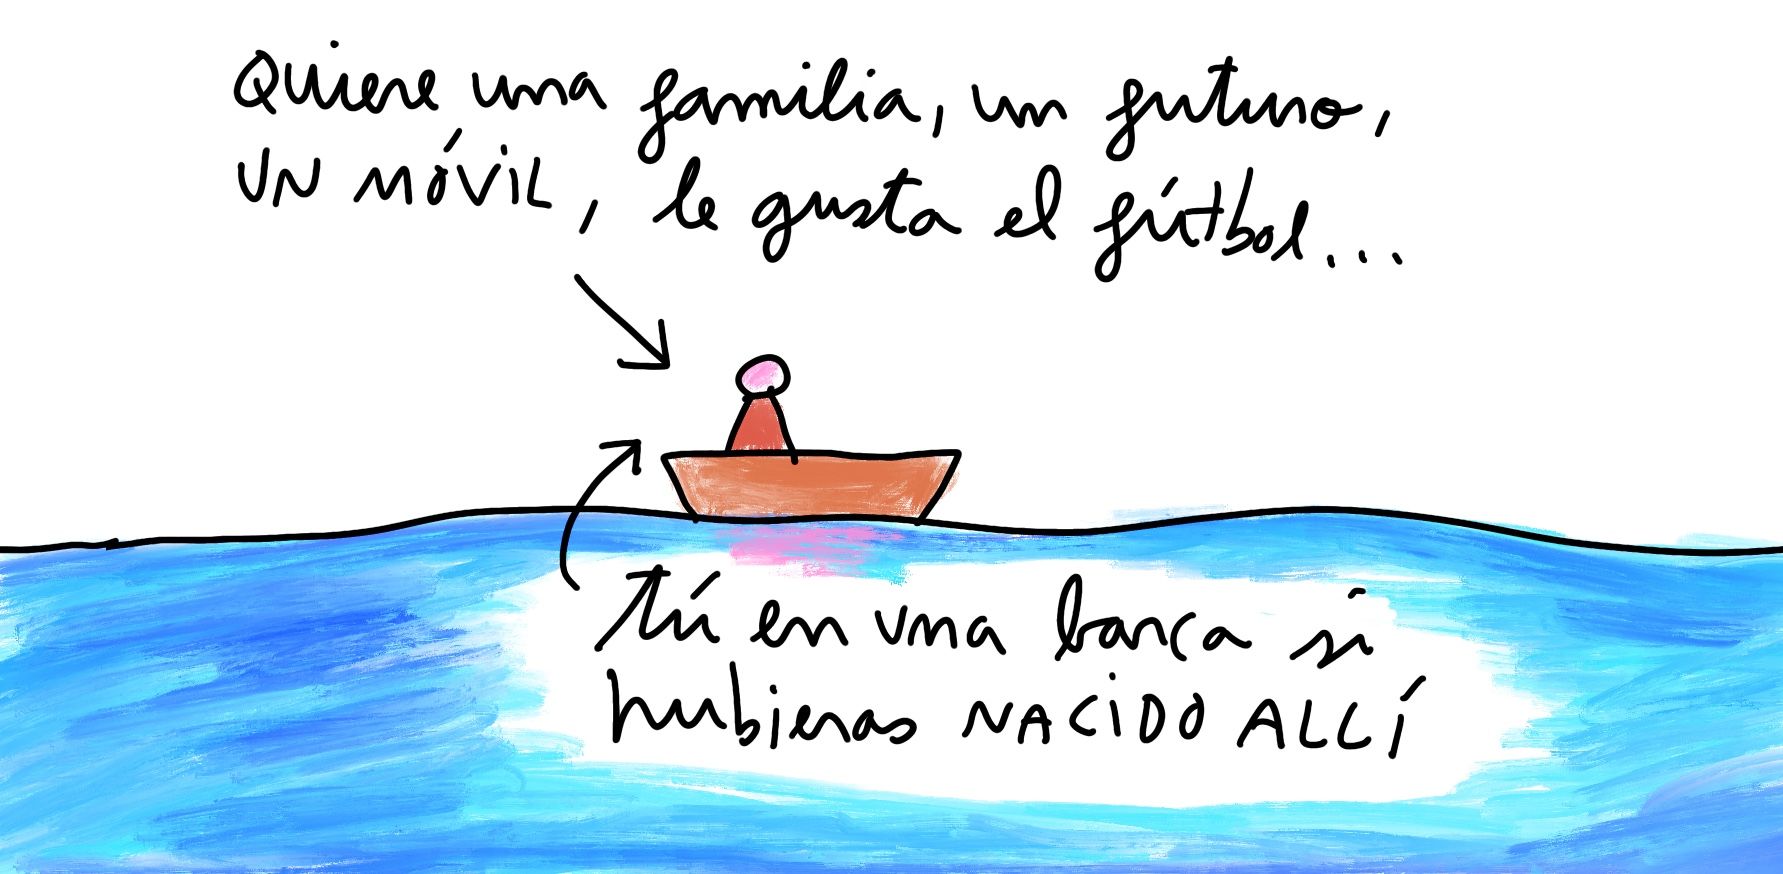 Quiere una familia, un futuro,
UN MÓVIL, le gusta el fútbol...
tú en una barca si
hubieras NACIDO ALLÍ